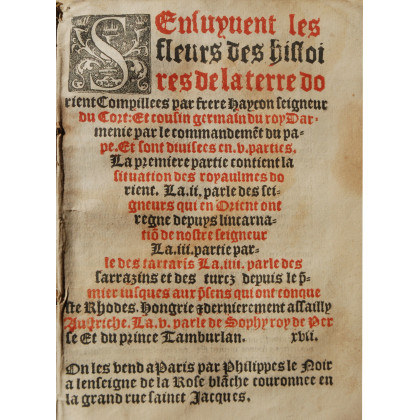 SEnsuyuent les
fleurs des histoi
res de la terre do
rient Compillees par frere Haycon seigneur
du Cort: Et cousin germain du roy Dar-
menie par le commandemēt du pa-
pe. Et sont diuisees en .v. parties.
La premiere partie contient la
situation des royaulmes do
rient. La .ii. parle des sei-
gneurs qui en Orient ont
regne depuys lincarna-
tiō de nostre seigneur
La .iii. partie par-
le des tartaris La .iiii. parle des
sarrazins et des turcz depuis le p̄-
mier iusques aux p̄sens qui ont conque
ste Rhodes. Hongrie ⁊ dernierement assailly
Autriche. La .v. parle de Sophy roy de Per
se Et du prince Tamburlan. xvii.
On les vend a Paris par Philippes le Noir
a lenseigne de la Rose blāche couronnee en
la grand rue sainct Jacques.